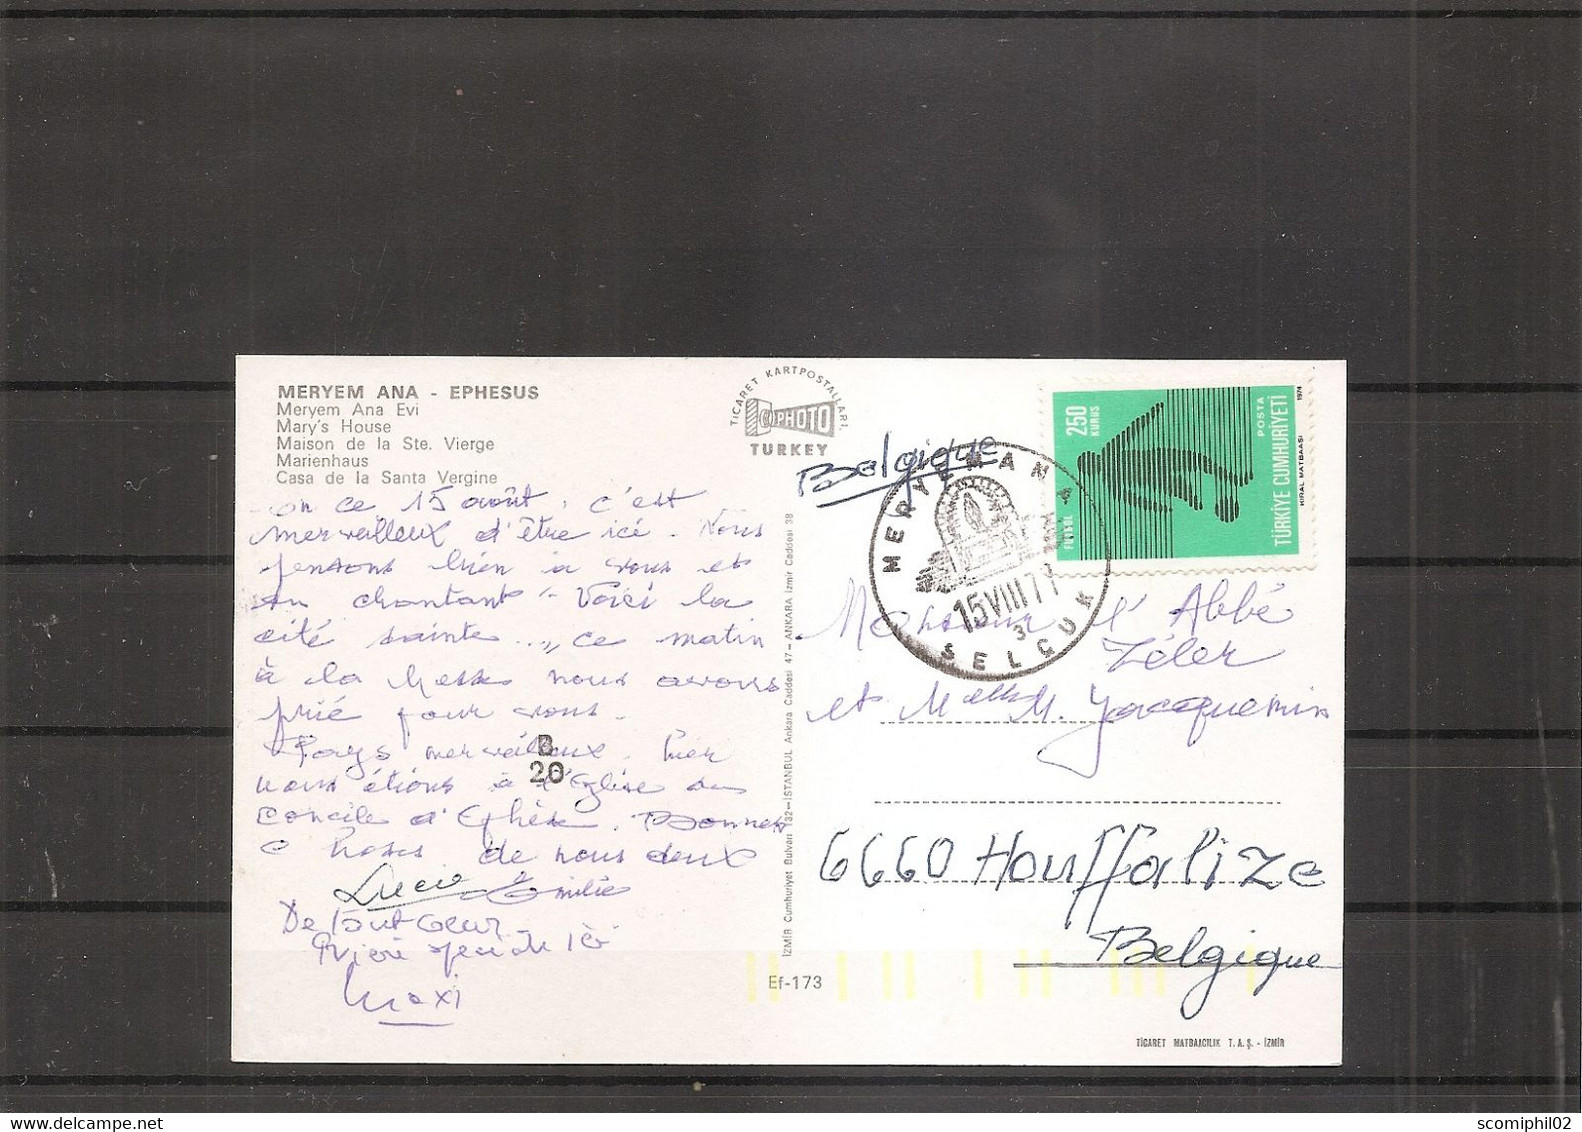 MERYEM ANA - EPHESUS
Meryem Ana Evi
Mary's House
Maison de la Ste. Vierge
Marienhaus
Casa de la Santa Vergine
on ce 15 août, c'est
merveilleux d'être ici. Nous
pensons bien à vous et
en chantant "Voici la
cité sainte...," ce matin
à la Messe nous avons
prié pour vous.
Pays merveilleux. Hier
nous étions à l'Eglise du
Concile d'Ephèse. Bonnes
choses de nous deux
Emilie
De tout cœur
Maxi
B
20
TİCARET KARTPOSTALLARI.
PHOTO
TURKEY
İZMİR Cumhuriyet Bulvarı 132-İSTANBUL Ankara Caddesi 47-ANKARA İzmir Caddesi 38
Ef-173
Belgique
MERYEMANA
15 VIII 77
3
SELÇUK
250
KURUS
FUTBOL
POSTA
TÜRKİYE CUMHURİYETİ
KIRAL MATBAASI
1974
Monsieur l'Abbé
Zéler
et Melle M. Jacquemin
6660 Houffalize
Belgique
TİCARET MATBAACILIK T. A. Ş. - İZMİR
scomiphil02